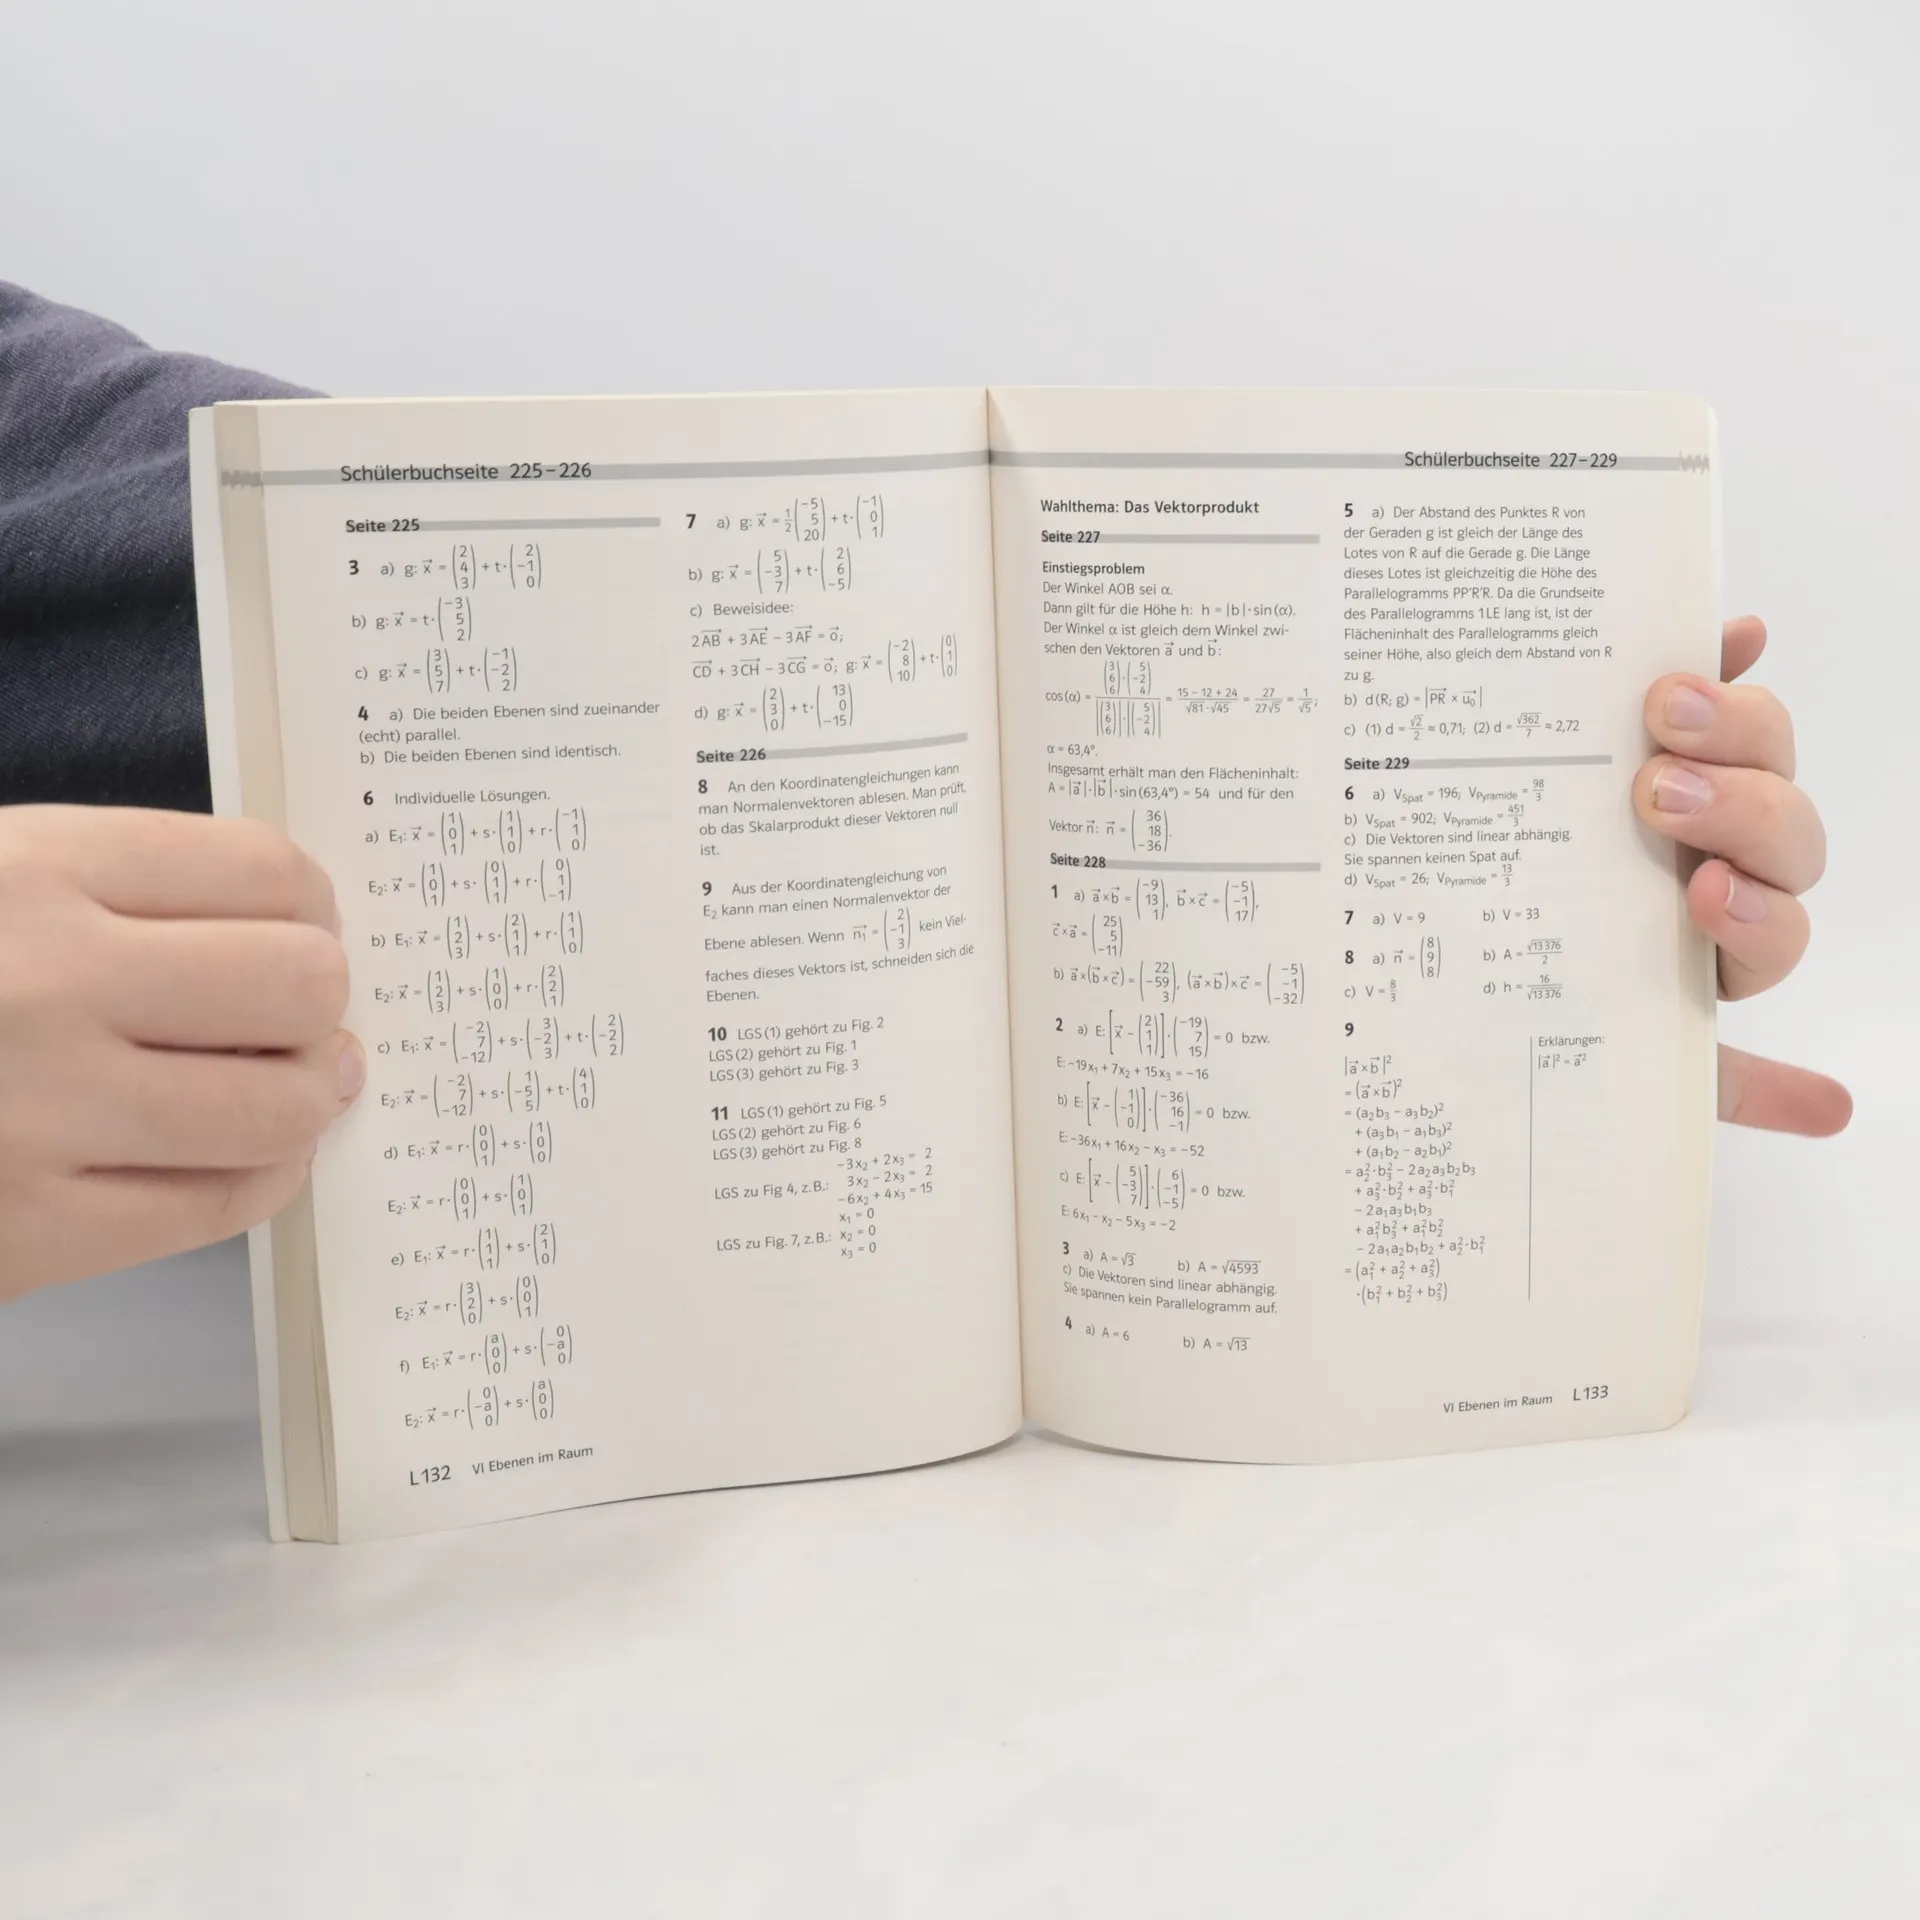 Schülerbuchseite 225–226
Seite 225
3 a) g: x⃗ = (2 4 3) + t·(2 −1 0)
b) g: x⃗ = t·(−3 5 2)
c) g: x⃗ = (3 5 7) + t·(−1 −2 2)
4 a) Die beiden Ebenen sind zueinander
(echt) parallel.
b) Die beiden Ebenen sind identisch.
6 Individuelle Lösungen.
a) E₁: x⃗ = (1 0 1) + s·(1 1 0) + r·(−1 1 0)
E₂: x⃗ = (1 0 1) + s·(0 1 1) + r·(0 1 −1)
b) E₁: x⃗ = (1 2 3) + s·(2 1 1) + r·(1 1 0)
E₂: x⃗ = (1 2 3) + s·(1 0 0) + r·(2 2 1)
c) E₁: x⃗ = (−2 7 −12) + s·(3 −2 3) + t·(2 −2 2)
E₂: x⃗ = (−2 7 −12) + s·(1 −5 5) + t·(4 1 0)
d) E₁: x⃗ = r·(0 0 1) + s·(1 0 0)
E₂: x⃗ = r·(0 0 1) + s·(1 0 1)
e) E₁: x⃗ = r·(1 1 1) + s·(2 1 0)
E₂: x⃗ = r·(3 2 0) + s·(0 0 1)
f) E₁: x⃗ = r·(a 0 0) + s·(0 −a 0)
E₂: x⃗ = r·(0 −a 0) + s·(a 0 0)
L132 VI Ebenen im Raum
7 a) g: x⃗ = 1/2 (−5 5 20) + t·(−1 0 1)
b) g: x⃗ = (5 −3 7) + t·(2 6 −5)
c) Beweisidee:
2AB⃗ + 3AE⃗ − 3AF⃗ = o⃗;
CD⃗ + 3CH⃗ − 3CG⃗ = o⃗; g: x⃗ = (−2 8 10) + t·(0 1 0)
d) g: x⃗ = (2 3 0) + t·(13 0 −15)
Seite 226
8 An den Koordinatengleichungen kann
man Normalenvektoren ablesen. Man prüft,
ob das Skalarprodukt dieser Vektoren null
ist.
9 Aus der Koordinatengleichung von
E₂ kann man einen Normalenvektor der
Ebene ablesen. Wenn n₁⃗ = (2 −1 3) kein Viel-
faches dieses Vektors ist, schneiden sich die
Ebenen.
10 LGS (1) gehört zu Fig. 2
LGS (2) gehört zu Fig. 1
LGS (3) gehört zu Fig. 3
11 LGS (1) gehört zu Fig. 5
LGS (2) gehört zu Fig. 6
LGS (3) gehört zu Fig. 8
−3x₂ + 2x₃ = 2
LGS zu Fig 4, z. B.: 3x₂ − 2x₃ = 2
−6x₂ + 4x₃ = 15
x₁ = 0
LGS zu Fig. 7, z. B.: x₂ = 0
x₃ = 0
Schülerbuchseite 227–229
Wahlthema: Das Vektorprodukt
Seite 227
Einstiegsproblem
Der Winkel AOB sei α.
Dann gilt für die Höhe h: h = |b|·sin(α).
Der Winkel α ist gleich dem Winkel zwi-
schen den Vektoren a⃗ und b⃗:
cos(α) = (3 6 6)·(5 −2 4) / |(3 6 6)|·|(5 −2 4)| = (15 − 12 + 24)/(√81·√45) = 27/(27√5) = 1/√5;
α = 63,4°.
Insgesamt erhält man den Flächeninhalt:
A = |a⃗|·|b⃗|·sin(63,4°) = 54 und für den
Vektor n⃗: n⃗ = (36 18 −36).
Seite 228
1 a) a⃗×b⃗ = (−9 13 1), b⃗×c⃗ = (−5 −1 17),
c⃗×a⃗ = (25 5 −11)
b) a⃗×(b⃗×c⃗) = (22 −59 3), (a⃗×b⃗)×c⃗ = (−5 −1 −32)
2 a) E: [x⃗ − (2 1 1)]·(−19 7 15) = 0 bzw.
E: −19x₁ + 7x₂ + 15x₃ = −16
b) E: [x⃗ − (1 −1 0)]·(−36 16 −1) = 0 bzw.
E: −36x₁ + 16x₂ − x₃ = −52
c) E: [x⃗ − (5 −3 7)]·(6 −1 −5) = 0 bzw.
E: 6x₁ − x₂ − 5x₃ = −2
3 a) A = √3 b) A = √4593
c) Die Vektoren sind linear abhängig.
Sie spannen kein Parallelogramm auf.
4 a) A = 6 b) A = √13
5 a) Der Abstand des Punktes R von
der Geraden g ist gleich der Länge des
Lotes von R auf die Gerade g. Die Länge
dieses Lotes ist gleichzeitig die Höhe des
Parallelogramms PP'R'R. Da die Grundseite
des Parallelogramms 1LE lang ist, ist der
Flächeninhalt des Parallelogramms gleich
seiner Höhe, also gleich dem Abstand von R
zu g.
b) d(R; g) = |PR⃗ × u₀⃗|
c) (1) d = √2/2 ≈ 0,71; (2) d = √362/7 ≈ 2,72
Seite 229
6 a) V_Spat = 196; V_Pyramide = 98/3
b) V_Spat = 902; V_Pyramide = 451/3
c) Die Vektoren sind linear abhängig.
Sie spannen keinen Spat auf.
d) V_Spat = 26; V_Pyramide = 13/3
7 a) V = 9 b) V = 33
8 a) n⃗ = (8 9 8) b) A = √13376/2
c) V = 8/3 d) h = 16/√13376
9
Erklärungen:
|a⃗|² = a⃗²
|a⃗×b⃗|²
= (a⃗×b⃗)²
= (a₂b₃ − a₃b₂)²
+ (a₃b₁ − a₁b₃)²
+ (a₁b₂ − a₂b₁)²
= a₂²·b₃² − 2a₂a₃b₂b₃
+ a₃²·b₂² + a₃²·b₁²
− 2a₁a₃b₁b₃
+ a₁²b₃² + a₁²b₂²
− 2a₁a₂b₁b₂ + a₂²·b₁²
= (a₁² + a₂² + a₃²)
·(b₁² + b₂² + b₃²)
VI Ebenen im Raum L133